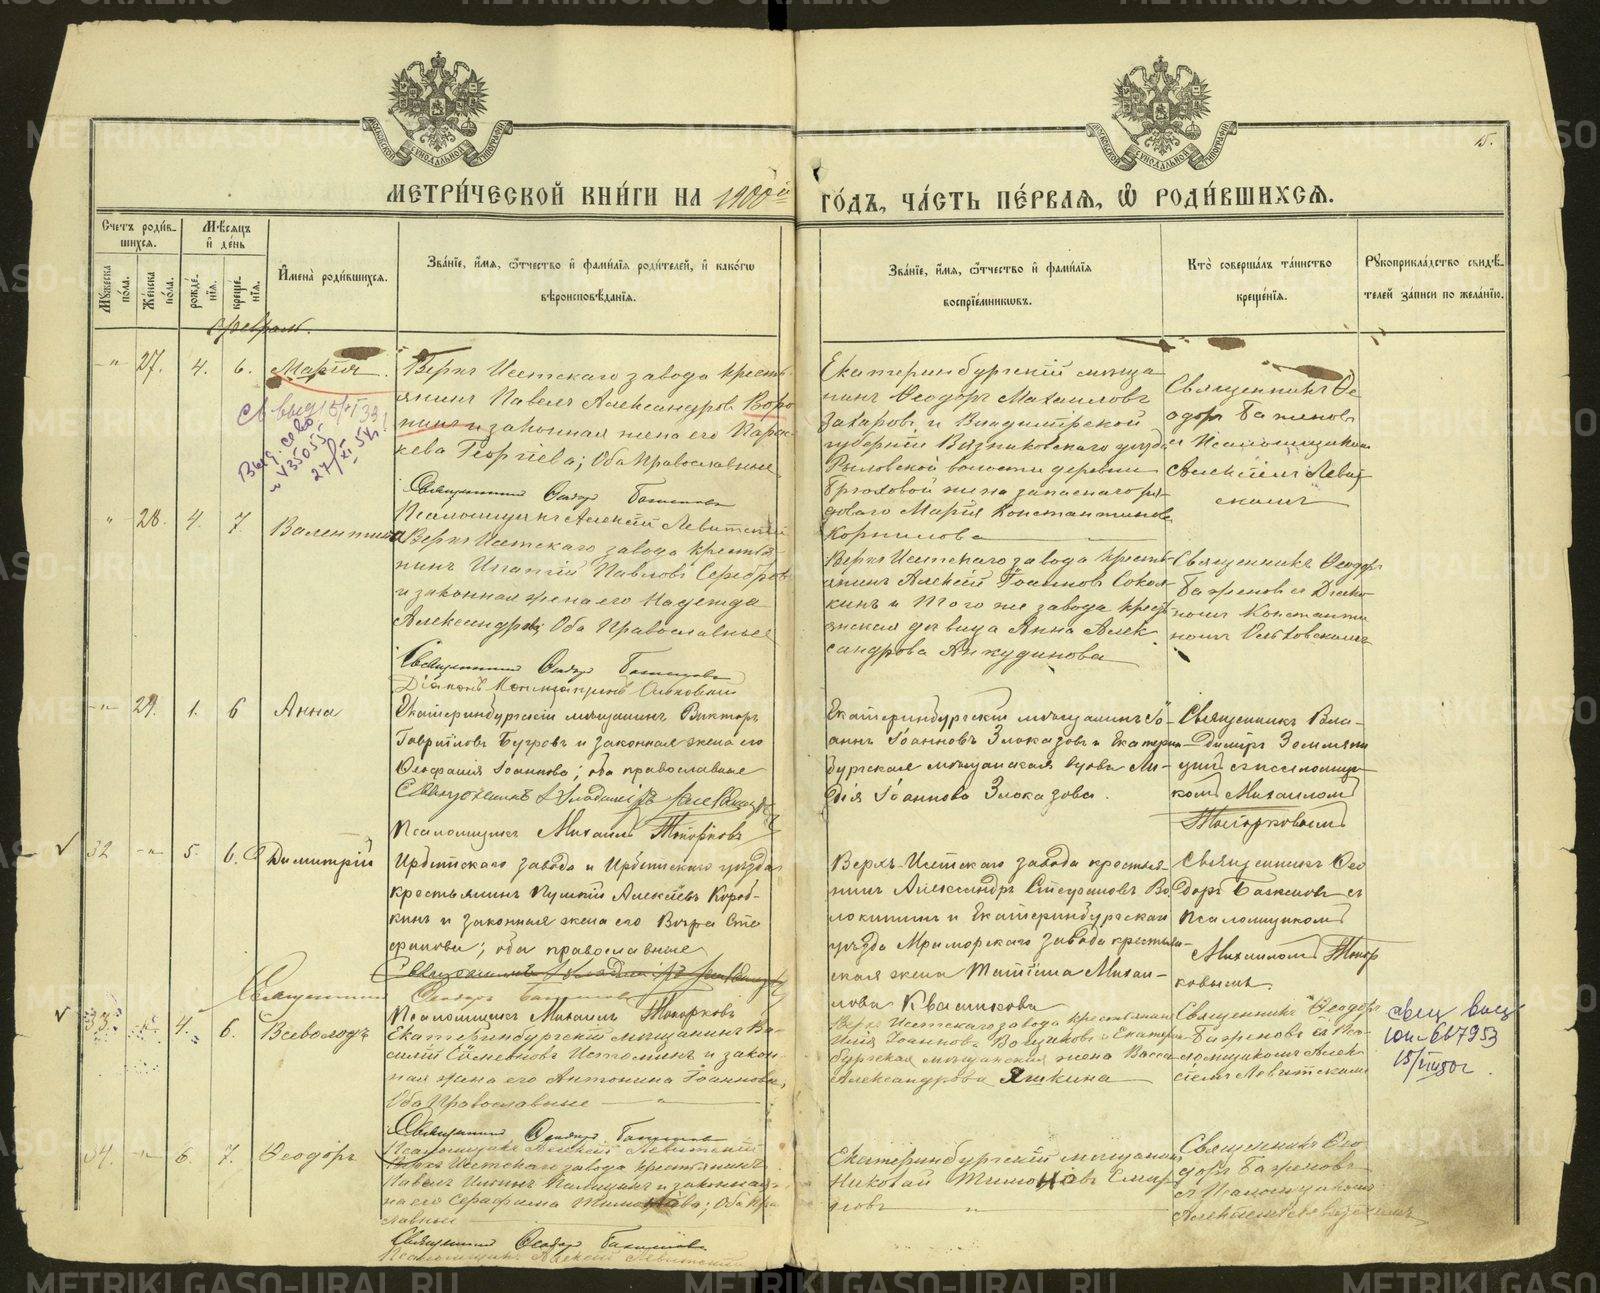 МЕТРИ́ЧЕСКОЙ КНИ́ГИ НА 1900й
ГО́ДЪ, ЧА́СТЬ ПЕ́РВАЯ, Ѿ РОДИ́ВШИХСЯ.
15.
МОСКОВСКОЙ СѴНОДАЛЬНОЙ ТИПОГРАФІИ
МОСКОВСКОЙ СѴНОДАЛЬНОЙ ТИПОГРАФІИ
Счетъ роди́в-
шихся.
Мѣсяцъ
и де́нь
Му́жеска
по́ла.
Же́нска
по́ла.
рожде́-
нія.
креще́-
нія.
Имена̀ роди́вшихся.
Зва́ніе, и́мя, ѻ́тчество и фами́лія роди́телей, и како́гѡ
вѣроисповѣ́данія.
Зва́ніе, и́мя, ѻ́тчество и фами́лія
воспріе́мниковъ.
Кто̀ соверша́лъ та́инство
креще́нія.
Рукоприкла́дство свидѣ́-
телей за́писи по жела́нію.
Февраль.
27. 4. 6. Марія.
Верхъ Исетскаго завода кресть-
янинъ Павелъ Александровъ Воро
нинъ и законная жена его Парас-
кева Георгіева; Оба Православные
Священникъ Ѳеодоръ Баженовъ
Псаломщикъ Алексій Левитскій
Екатеринбургскій мѣща
нинъ Ѳеодоръ Михаиловъ
Захаровъ и Владимірской
губерніи Вязниковскаго уѣзда
Рыловской волости деревни
Брюховой жена запаснаго ря
доваго Марія Константинова
Корнилова
Священникъ Ѳе
одоръ Баженовъ
съ Псаломщикомъ
Алексіемъ Левит
скимъ
28. 4. 7. Валентина
Верхъ Исетскаго завода крестья-
нинъ Ипатій Павловъ Серебров
и законная жена его Надежда
Александрова Оба Православные
Священникъ Ѳеодоръ Баженовъ
Діаконъ Константинъ Ольховскій
Верхъ Исетскаго завода кресть-
янинъ Алексій Іоанновъ Сокол
кинъ и того же завода кресть
янская дѣвица Анна Алек
сандрова Анкудинова
Священникъ Ѳеодоръ
Баженовъ съ Діако
номъ Константи
номъ Ольховскимъ
29. 1. 6 Анна
Екатеринбургскій мѣщанинъ Викторъ
Гавриловъ Бугровъ и законная жена его
Ѳеофанія Іоаннова; оба православные
Псаломщикъ Михаилъ Топорковъ
Екатеринбургскій мѣщанинъ Іо-
аннъ Іоанновъ Злоказовъ и Екатерин-
бургская мѣщанская вдова Ли-
дія Іоаннова Злоказова.
Священникъ Вла-
диміръ Земляни
цинъ съ псаломщи-
комъ Михаиломъ
Топорковымъ
32 5. 6. Димитрій
Ирбитскаго завода и Ирбитскаго уѣзда
крестьянинъ Алексѣевъ Короб-
кинъ и законная жена его Вѣра Сте
фанова; оба православные
Священникъ Ѳеодоръ Баженовъ
Псаломщикъ Михаилъ Топорковъ
Верхъ-Исетскаго завода крестья-
нинъ Александръ Стефановъ Во-
локитинъ и Екатеринбургскаго
уѣзда Мраморскаго завода крестья-
нская жена Михаи-
лова Квашнкова
Священникъ Ѳео
доръ Баженовъ съ
Псаломщикомъ
Михаиломъ Топор
ковымъ.
33. 4. 6. Всеволодъ
Екатеринбургскій мѣщанинъ Ва-
силій Истоминъ и закон-
ная жена его Антонина Іоаннова;
Оба Православные
Священникъ Ѳеодоръ Баженовъ
Псаломщикъ Алексій Левитскій
Верхъ Исетскаго завода крестьянинъ
Іоанновъ и Екатерин-
бургская мѣщанская жена Васса
Александрова Яшкина
Священникъ Ѳеодоръ
Баженовъ съ Пса-
ломщикомъ Алек-
сіемъ Левитскимъ
15/VIII 50 г.
34. 6. 7. Ѳеодоръ
Верхъ Исетскаго завода крестьянинъ
Павелъ и законная
жена его Серафима Тимонова; Оба Пра
славные
Священникъ Ѳеодоръ Баженовъ
Псаломщикъ Алексій Левитскій
Екатеринбургскій мѣщанинъ
Николай Тимоновъ
Священникъ Ѳео
доръ Баженовъ
съ Псаломщикомъ
Алексіемъ Левитскимъ
METRIKI.GASO-URAL.RU